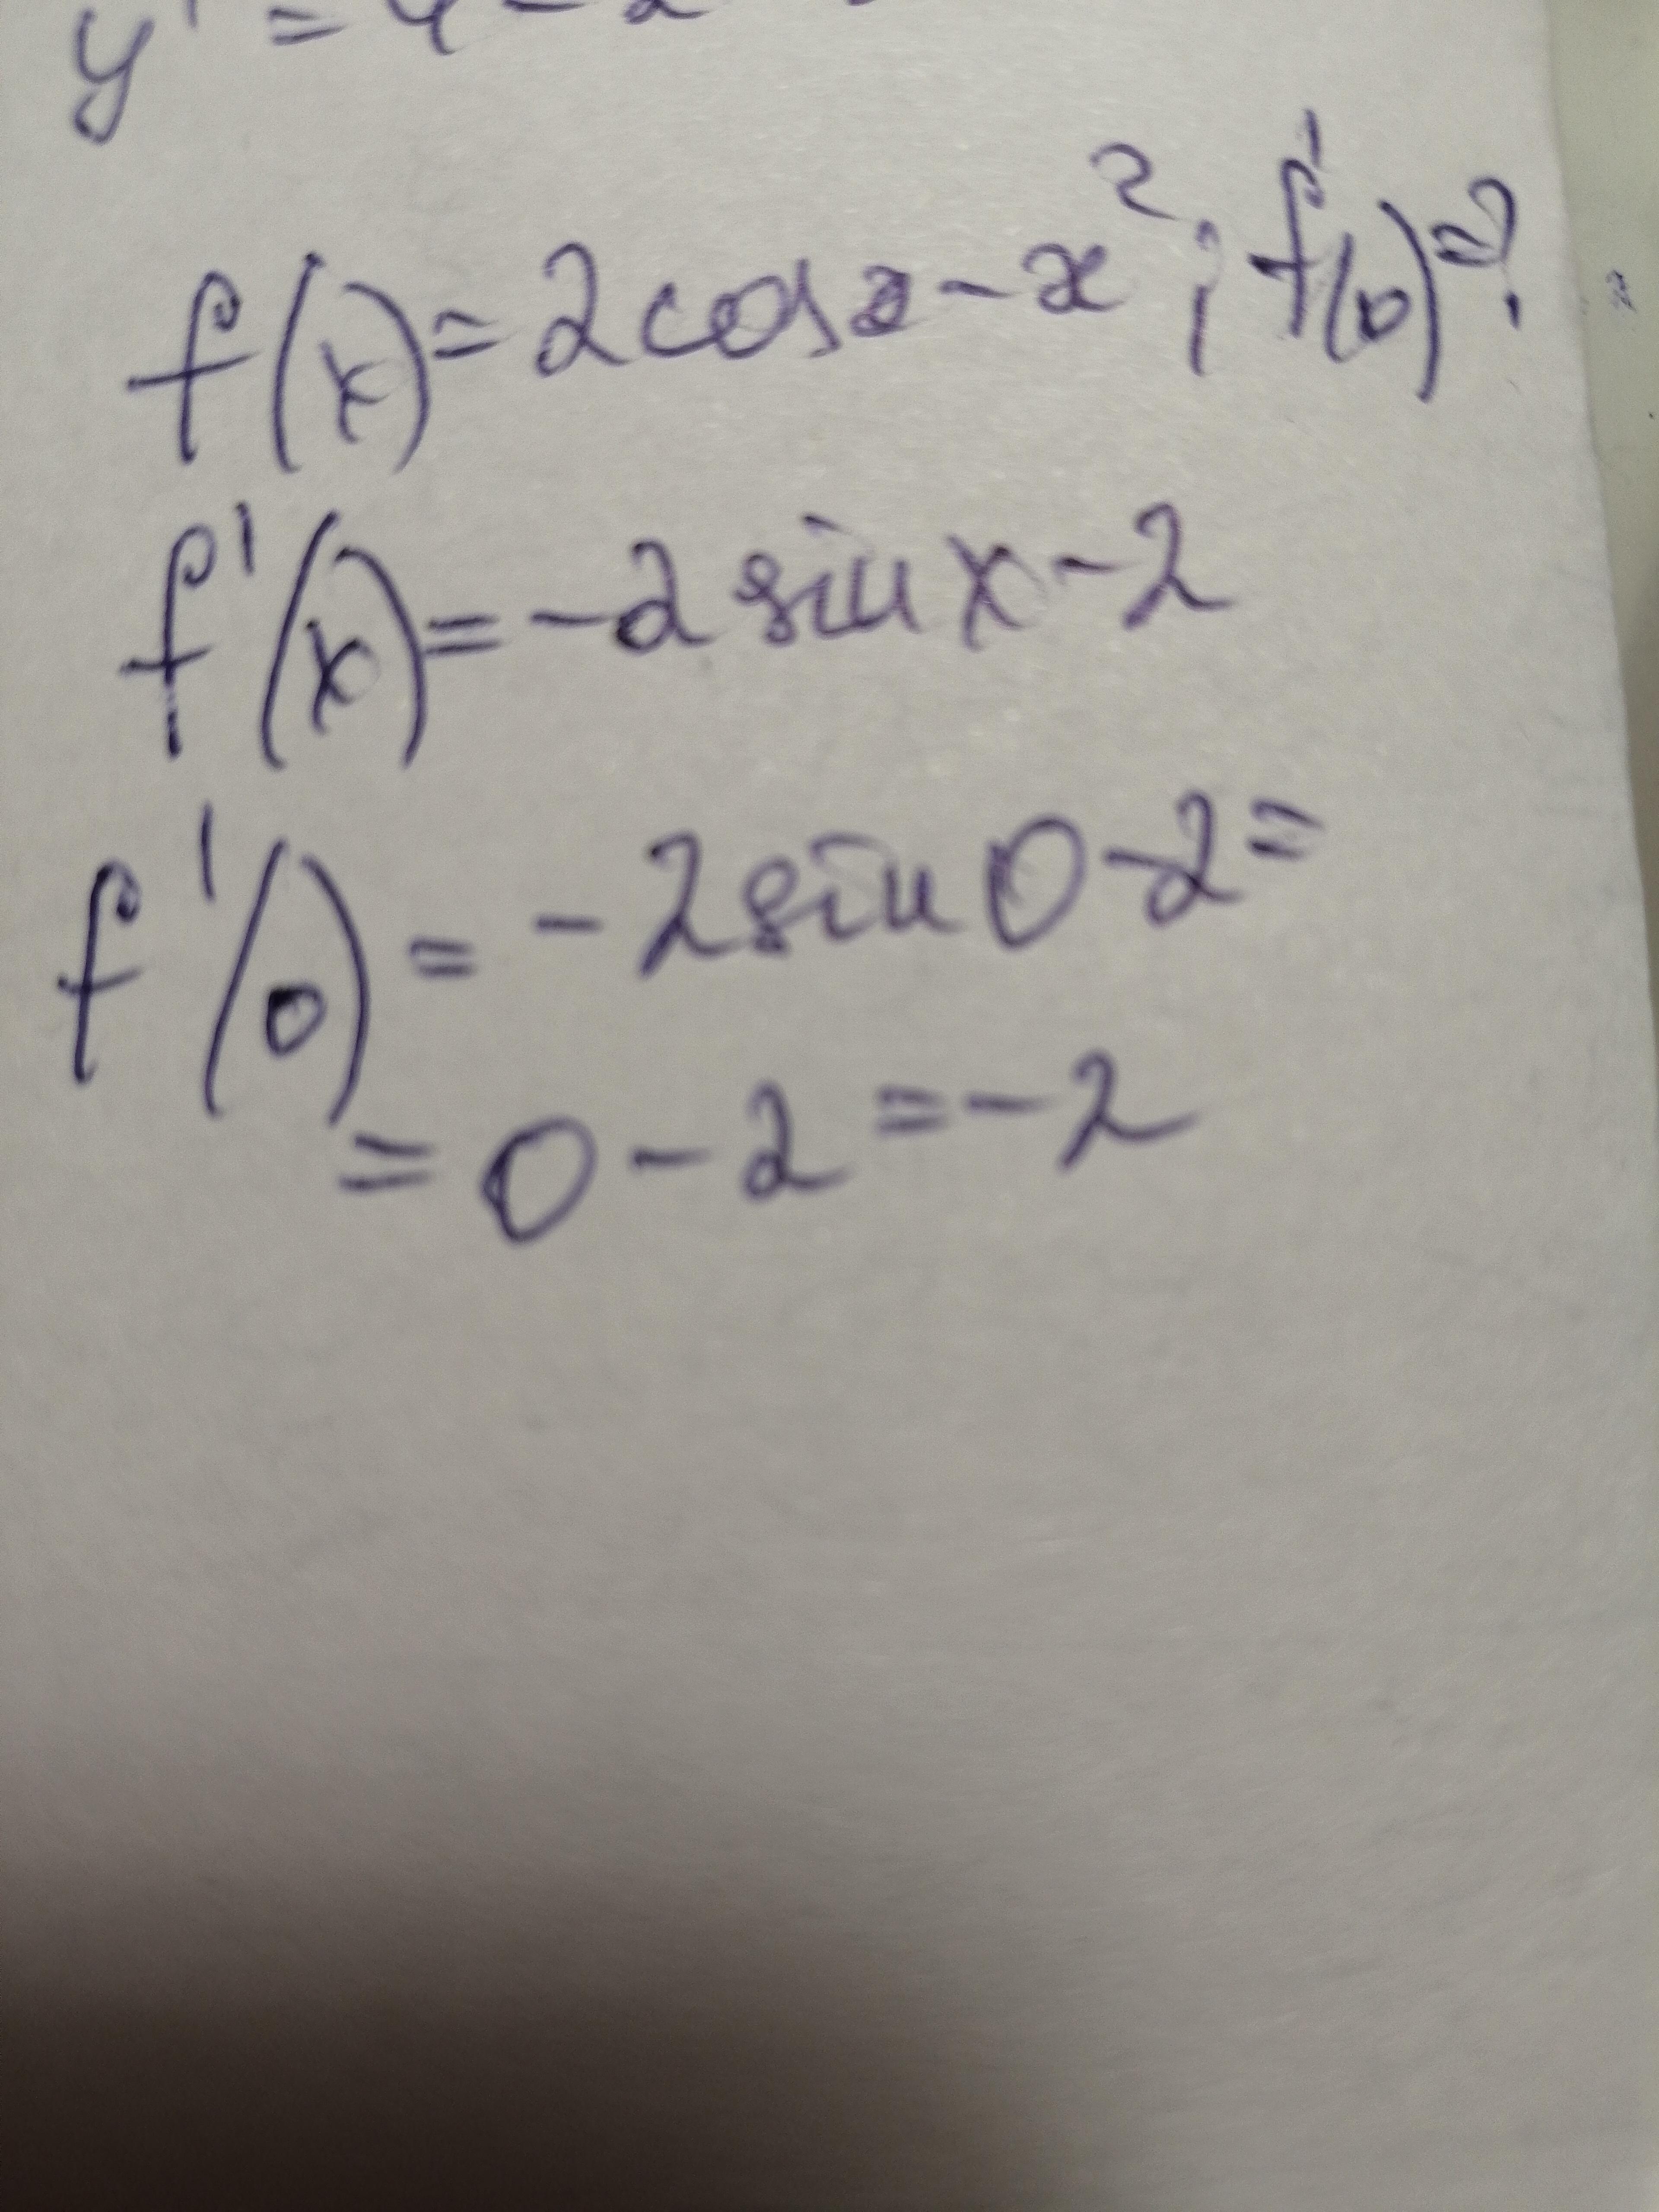 f(x)=2cosx-x²; f'(0)=?
f'(x)=-2sinx-2
f'(0)=-2sin0-2=
=0-2=-2